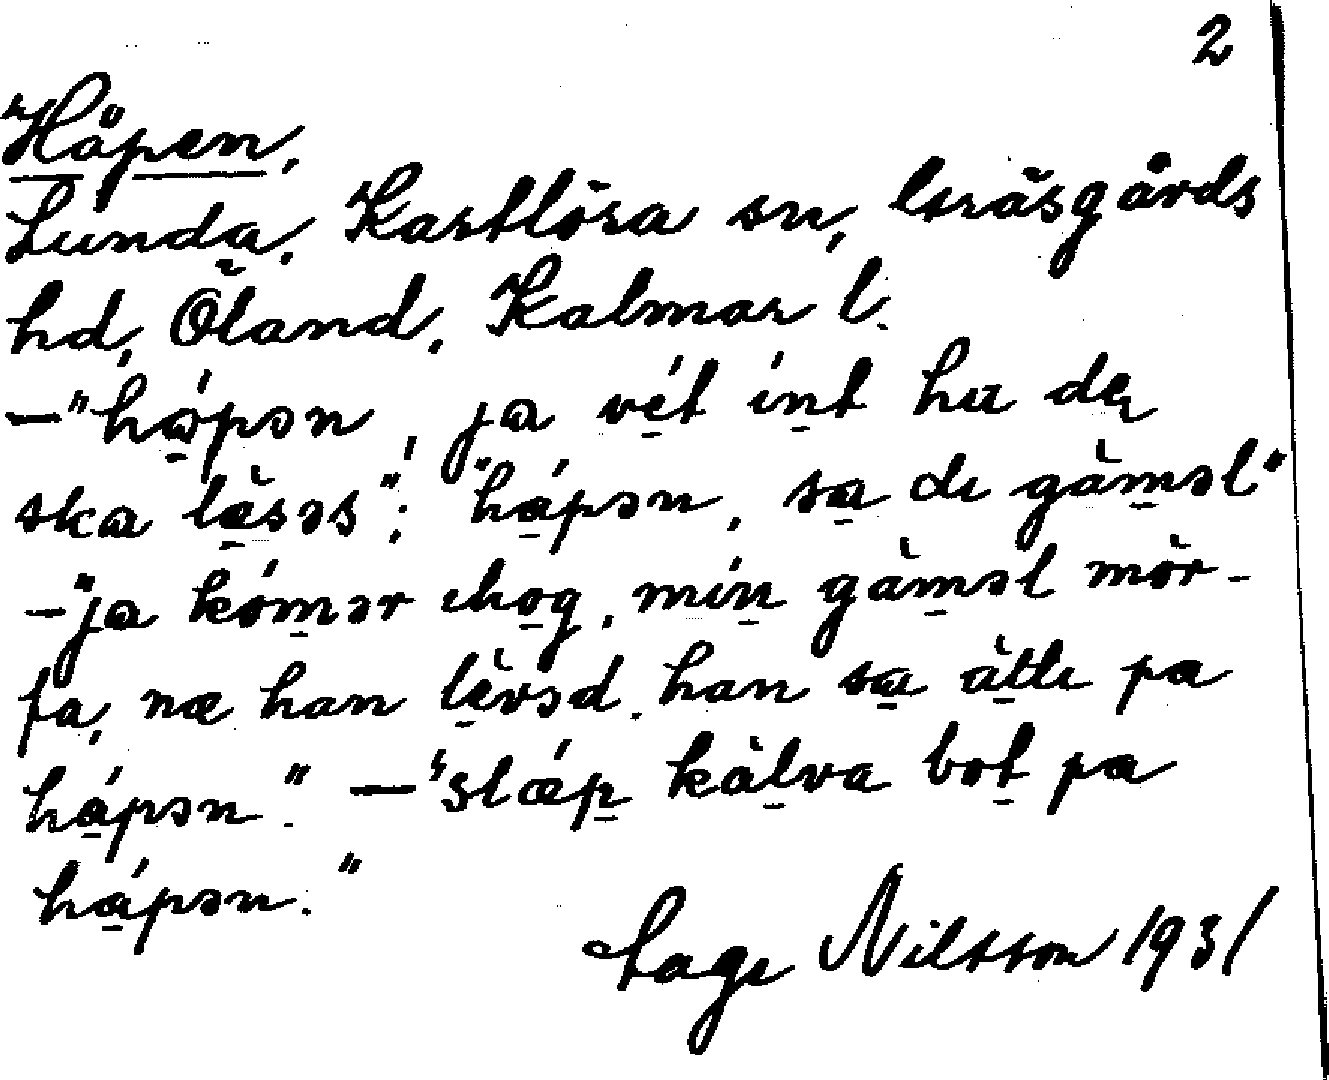 2
Håpen,
Lunda, Kastlösa sn, Gräsgårds
hd, Öland, Kalmar l.
—"hápən, ja vét ínt hu de
ska lèsəs"; "hápən, sa dı gàməl"
—"ja kómər ıhog, mín gàməl mòr-
fa, næ han lèvəd, han sa àtlı pa
hápən". —"slǽp kàlva bot pa
hápən."
Tage Nilsson 1931